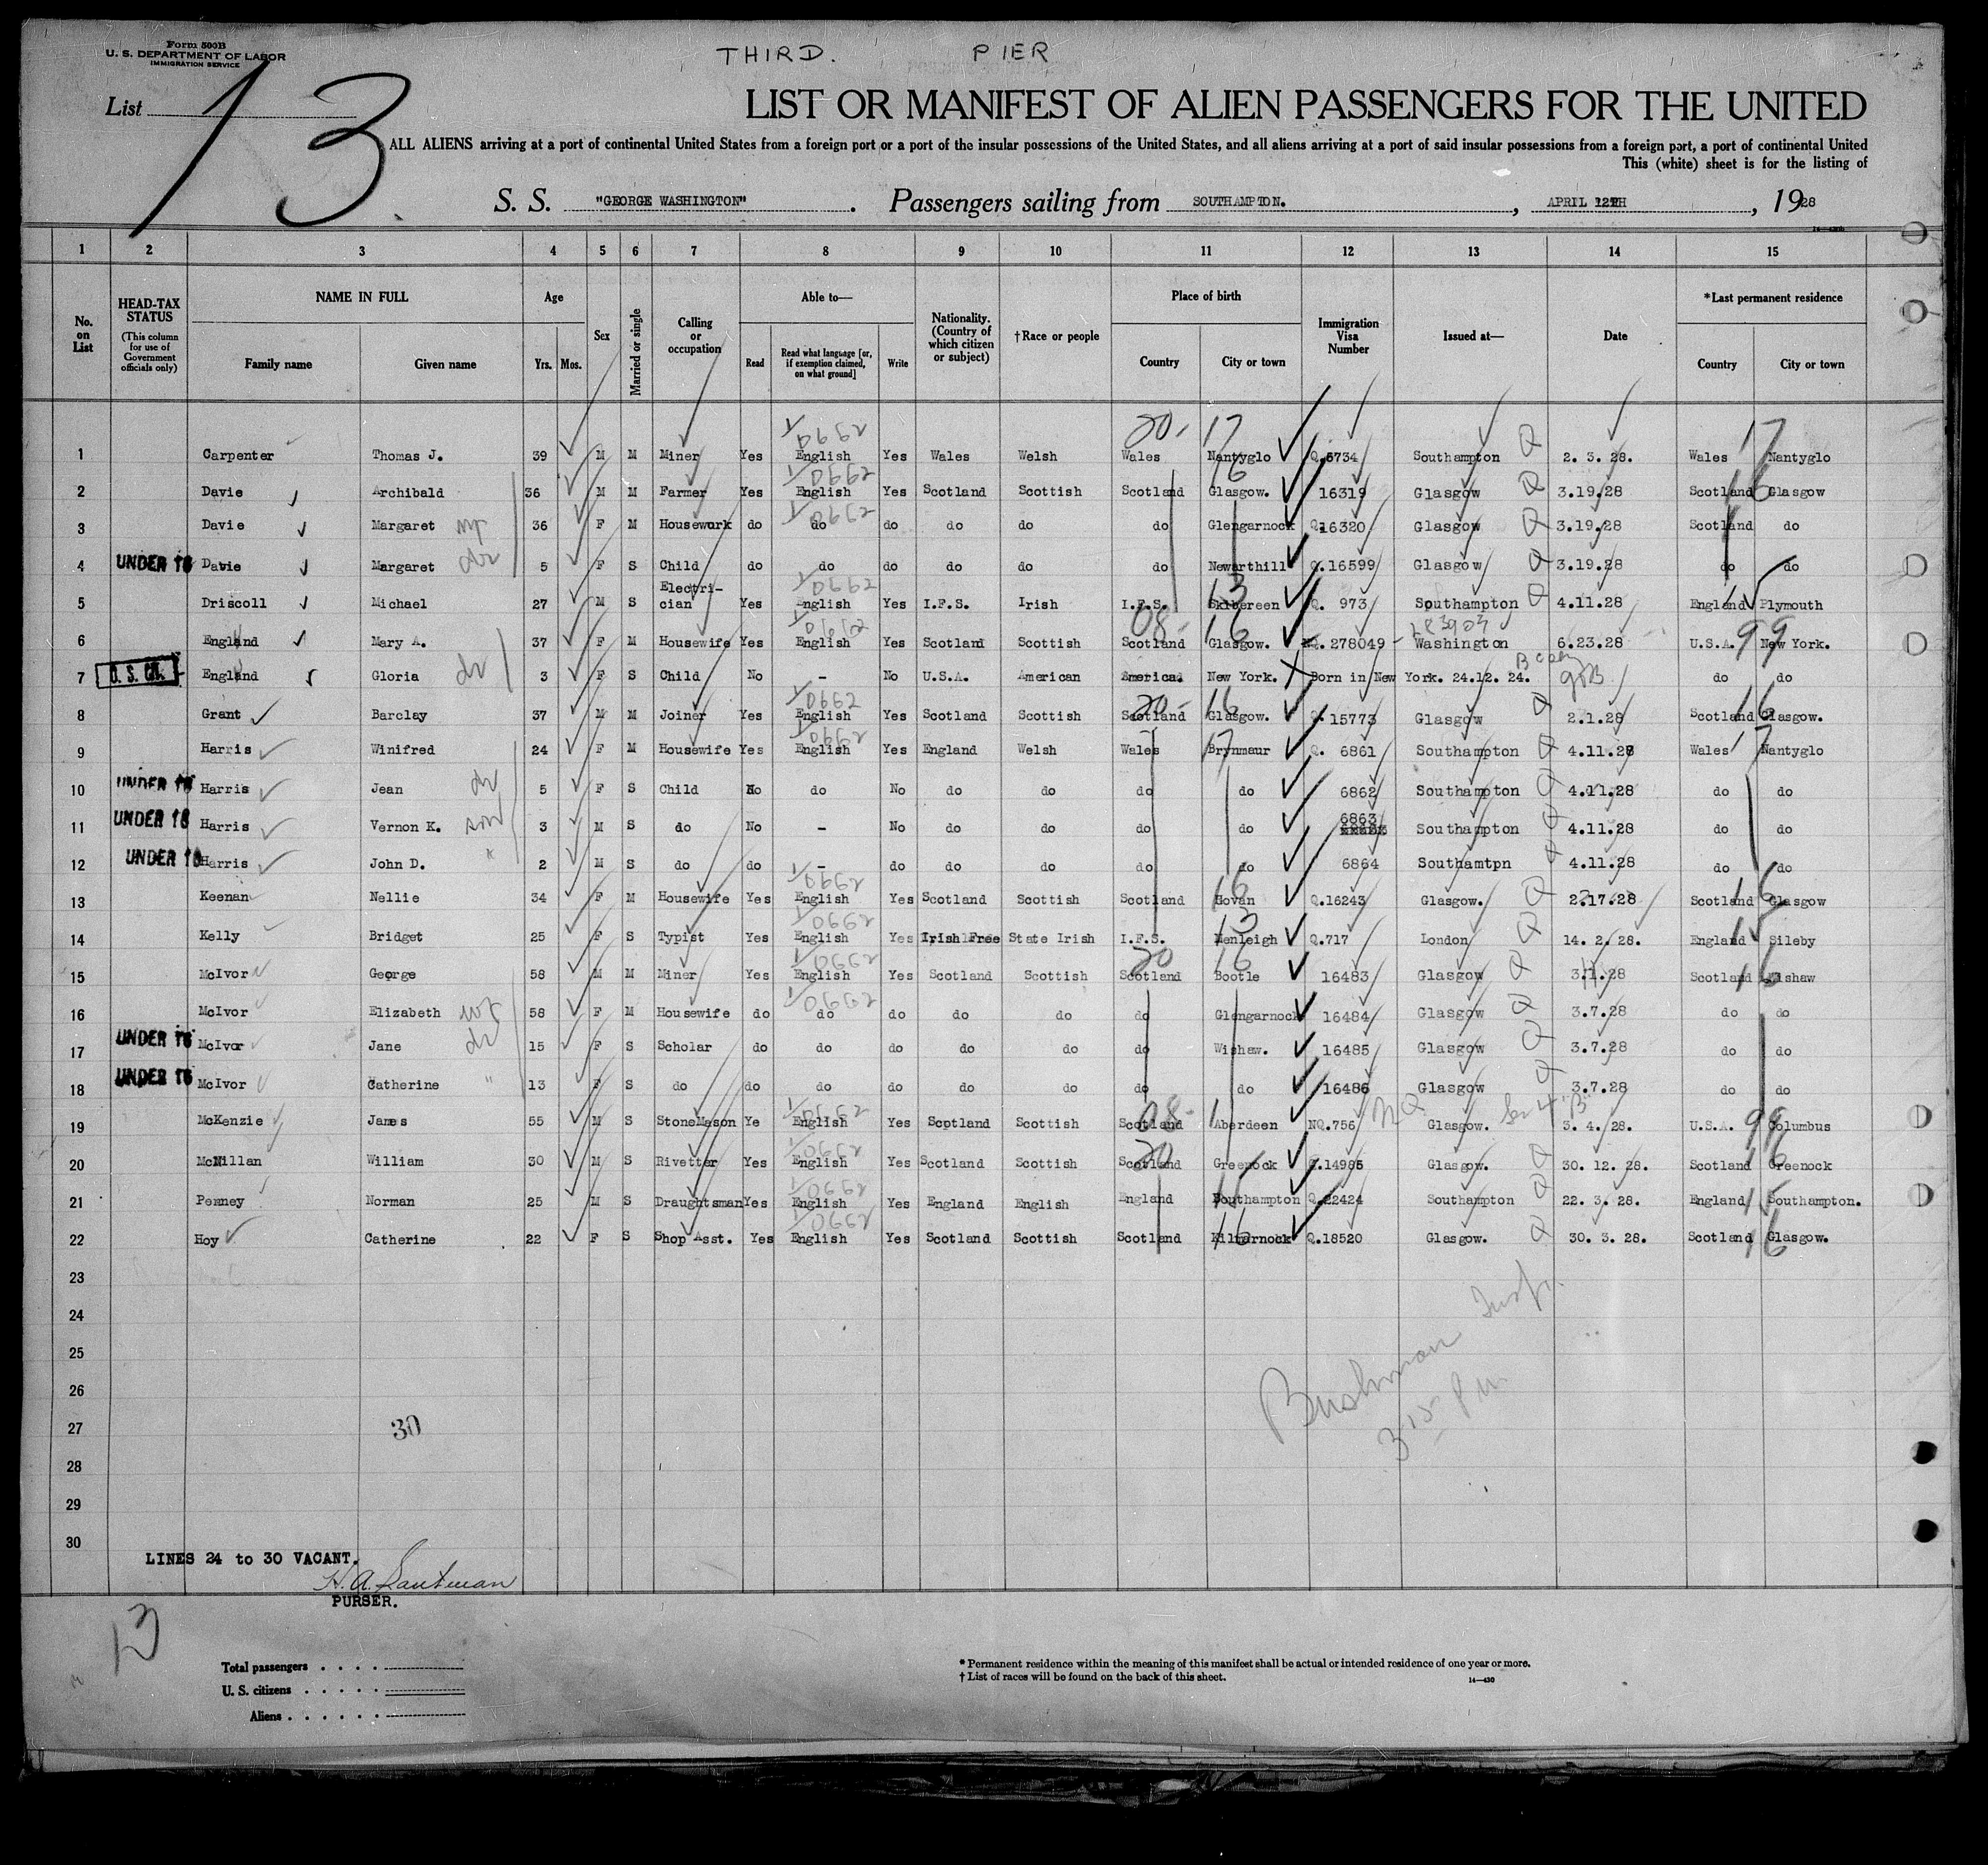 Form 500B
U. S. DEPARTMENT OF LABOR
IMMIGRATION SERVICE
THIRD. PIER
List 13
LIST OR MANIFEST OF ALIEN PASSENGERS FOR THE UNITED
ALL ALIENS arriving at a port of continental United States from a foreign port or a port of the insular possessions of the United States, and all aliens arriving at a port of said insular possessions from a foreign port, a port of continental United
This (white) sheet is for the listing of
S. S. "GEORGE WASHINGTON". Passengers sailing from SOUTHAMPTON. , APRIL 12TH , 1928
1 2 3 4 5 6 7 8 9 10 11 12 13 14 15
No. on List
HEAD-TAX STATUS (This column for use of Government officials only)
NAME IN FULL Family name Given name
Age Yrs. Mos.
Sex
Married or single
Calling or occupation
Able to— Read Read what language [or, if exemption claimed, on what ground] Write
Nationality. (Country of which citizen or subject)
†Race or people
Place of birth Country City or town
Immigration Visa Number
Issued at—
Date
*Last permanent residence Country City or town
1 Carpenter Thomas J. 39 M M Miner Yes English Yes Wales Welsh Wales Nantyglo Q.6734 Southampton 2. 3. 28. Wales Nantyglo
2 Davie Archibald 36 M M Farmer Yes English Yes Scotland Scottish Scotland Glasgow. 16319 Glasgow 3.19.28 Scotland Glasgow
3 Davie Margaret 36 F M Housework do do do do do do Glengarnock Q.16320 Glasgow 3.19.28 Scotland do
4 UNDER 16 Davie Margaret dr 5 F S Child do do do do do do Newarthill Q.16599 Glasgow 3.19.28 do do
5 Driscoll Michael 27 M S Electri-
cian Yes English Yes I.F.S. Irish I.F.S. Skibereen Q. 973 Southampton 4.11.28 England Plymouth
6 England Mary A. 37 F M Housewife Yes English Yes Scotland Scottish Scotland Glasgow. NQ. 278049 Washington 6.23.28 U.S.A. New York.
7 U. S. Cit. England Gloria dr 3 F S Child No - No U.S.A. American America. New York. Born in New York. 24.12. 24. do do
8 Grant Barclay 37 M M Joiner Yes English Yes Scotland Scottish Scotland Glasgow. Q. 15773 Glasgow 2.1.28 Scotland Glasgow.
9 Harris Winifred 24 F M Housewife Yes English Yes England Welsh Wales Brynmaur Q. 6861 Southampton 4.11.28 Wales Nantyglo
10 UNDER 16 Harris Jean dr 5 F S Child No do No do do do do 6862 Southampton 4.11.28 do do
11 UNDER 16 Harris Vernon K. son 3 M S do No - No do do do do 6863 Southampton 4.11.28 do do
12 UNDER 16 Harris John D. " 2 M S do do - do do do do do 6864 Southamtpn 4.11.28 do do
13 Keenan Nellie 34 F M Housewife Yes English Yes Scotland Scottish Scotland Govan Q.16243 Glasgow. 2.17.28 Scotland Glasgow
14 Kelly Bridget 25 F S Typist Yes English Yes Irish Free State Irish I.F.S. Henleigh Q.717 London 14. 2. 28. England Sileby
15 McIvor George 58 M M Miner Yes English Yes Scotland Scottish Scotland Bootle 16483 Glasgow 28 Scotland Wishaw
16 McIvor Elizabeth wf 58 F M Housewife do do do do do do Glengarnock 16484 Glasgow 3.7.28 do do
17 UNDER 16 McIvor Jane dr 15 F S Scholar do do do do do do Wishaw. 16485 Glasgow 3.7.28 do do
18 UNDER 16 McIvor Catherine " 13 F S do do do do do do do do 16486 Glasgow 3.7.28 do do
19 McKenzie James 55 M S StoneMason Ye English Yes Scotland Scottish Scotland Aberdeen NQ.756 NQ Glasgow. 3. 4. 28. U.S.A. Columbus
20 McMillan William 30 M S Rivetter Yes English Yes Scotland Scottish Scotland Greenock Q.14985 Glasgow. 30. 12. 28. Scotland Greenock
21 Penney Norman 25 M S Draughtsman Yes English Yes England English England Southampton Q.22424 Southampton 22. 3. 28. England Southampton.
22 Hoy Catherine 22 F S Shop Asst. Yes English Yes Scotland Scottish Scotland Kilmarnock Q.18520 Glasgow. 30. 3. 28. Scotland Glasgow.
23
24
25
26
27 30
28
29
30
Bushman Insp.
3 15 P m
LINES 24 to 30 VACANT.
H. A. Santman
PURSER.
13
Total passengers . . . .
U. S. citizens . . . . .
Aliens . . . . . .
* Permanent residence within the meaning of this manifest shall be actual or intended residence of one year or more.
† List of races will be found on the back of this sheet.
14—430